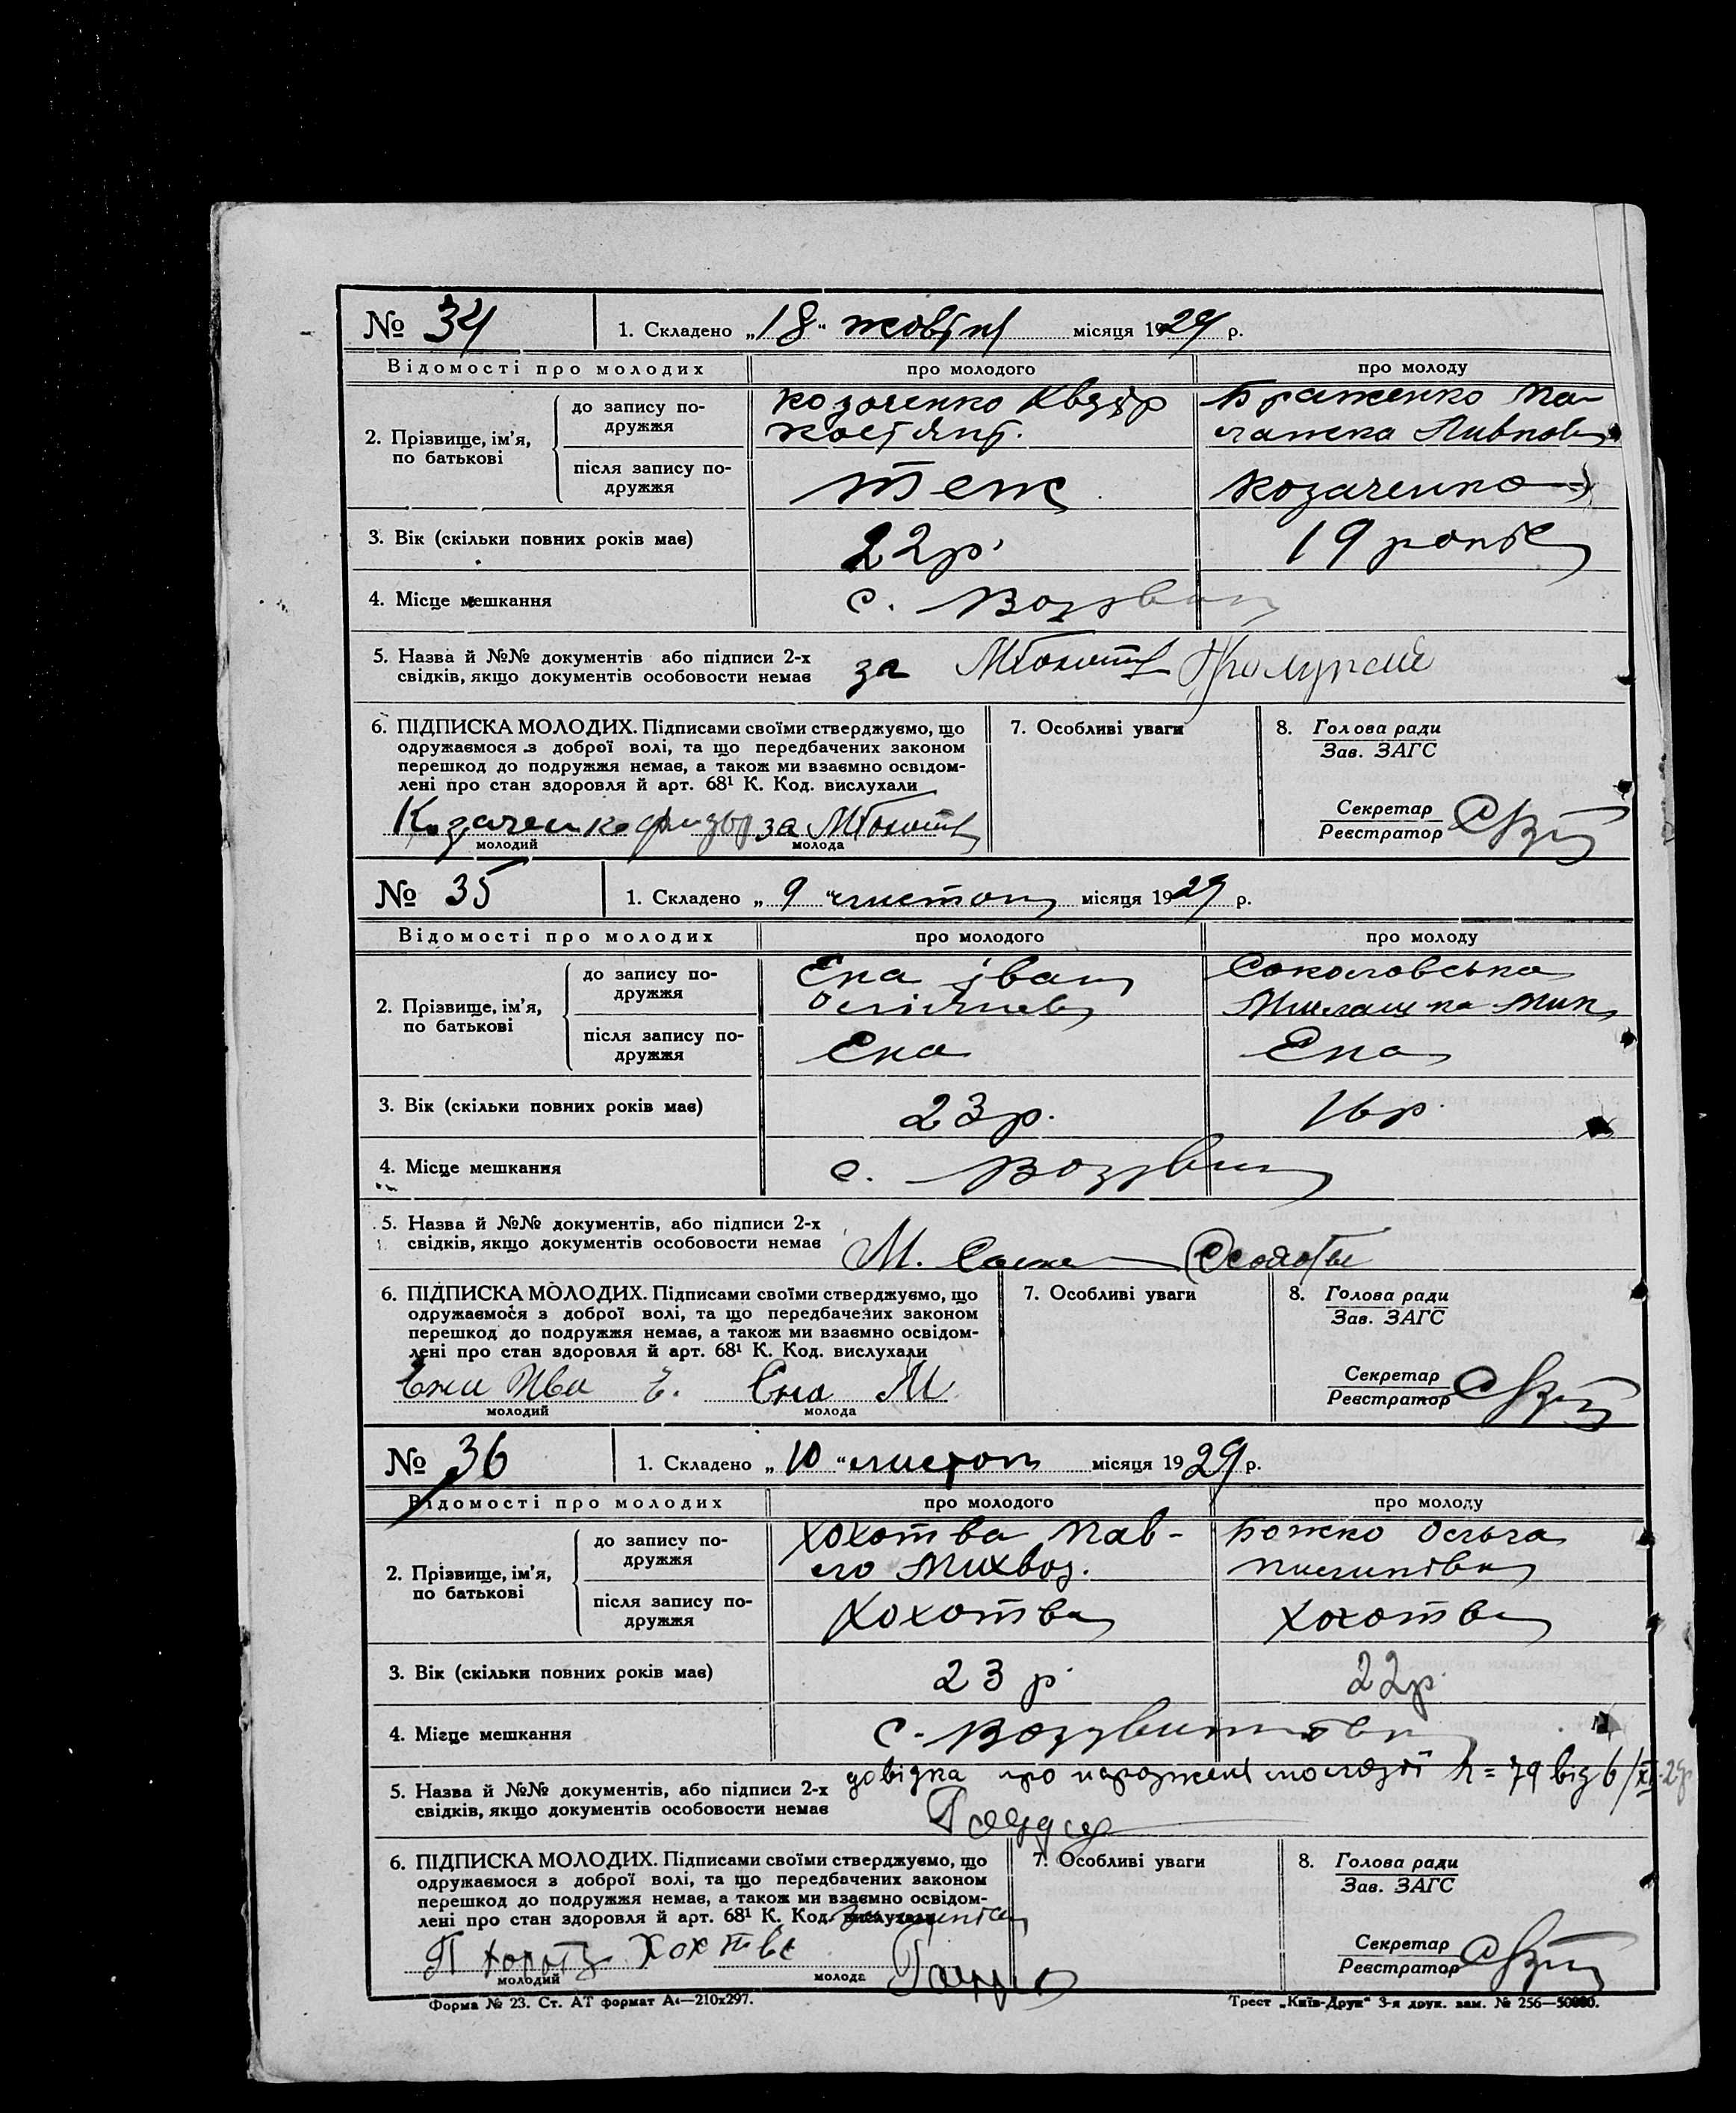 № 34 1. Складено „18“ жовтня місяця 1929 р.
Відомості про молодих про молодого про молоду
2. Прізвище, ім'я, по батькові
до запису подружжя
Козаченко Костянт.
Браженко Павлов
після запису подружжя
теж Козаченко
3. Вік (скільки повних років має) 22 р. 19 років
4. Місце мешкання с. Воздвиж
5. Назва й №№ документів або підписи 2-х
свідків, якщо документів особовости немає за
6. ПІДПИСКА МОЛОДИХ. Підписами своїми стверджуємо, що
одружаємося з доброї волі, та що передбачених законом
перешкод до подружжя немає, а також ми взаємно освідом-
лені про стан здоровля й арт. 68¹ К. Код. вислухали
Козаченко за
молодий молода
7. Особливі уваги
8. Голова ради
Зав. ЗАГС
Секретар
Реєстратор
№ 35 1. Складено „9“ листоп місяця 1929 р.
Відомості про молодих про молодого про молоду
2. Прізвище, ім'я, по батькові
до запису подружжя
Єна Іван
Соколовська Мик
після запису подружжя
Єна Єна
3. Вік (скільки повних років має) 23 р. 16 р.
4. Місце мешкання с. Воздвиж
5. Назва й №№ документів, або підписи 2-х
свідків, якщо документів особовости немає М.
6. ПІДПИСКА МОЛОДИХ. Підписами своїми стверджуємо, що
одружаємося з доброї волі, та що передбачених законом
перешкод до подружжя немає, а також ми взаємно освідом-
лені про стан здоровля й арт. 68¹ К. Код. вислухали
Єна Ива Є. Єна М
молодий молода
7. Особливі уваги
8. Голова ради
Зав. ЗАГС
Секретар
Реєстратор
№ 36 1. Складено „10“ листоп місяця 1929 р.
Відомості про молодих про молодого про молоду
2. Прізвище, ім'я, по батькові
до запису подружжя
Хохотва Пав-
ло
Божко Ольга
Пилипівна
після запису подружжя
Хохотва Хохотва
3. Вік (скільки повних років має) 23 р. 22 р.
4. Місце мешкання с. Воздвижовка
5. Назва й №№ документів, або підписи 2-х
свідків, якщо документів особовости немає
довідка про народження молодої №=79 від 6/XI-29р
6. ПІДПИСКА МОЛОДИХ. Підписами своїми стверджуємо, що
одружаємося з доброї волі, та що передбачених законом
перешкод до подружжя немає, а також ми взаємно освідом-
лені про стан здоровля й арт. 68¹ К. Код. вислухали
П
молодий молода
7. Особливі уваги
8. Голова ради
Зав. ЗАГС
Секретар
Реєстратор
Форма № 23. Ст. АТ формат А₄—210х297. Трест „Київ-Друк“ 3-я друк. зам. № 256—50000.